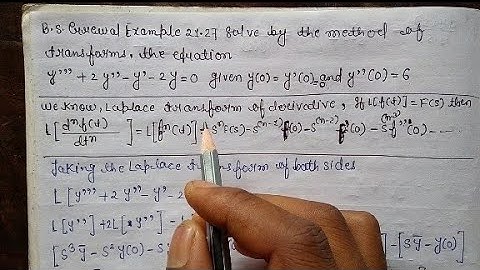 B.S. Grewal Example 21.27 Solve by the method of
transforms, the equation
y''' + 2y'' - y' - 2y = 0 given y(0) = y'(0) = 0 and y''(0) = 6
we know, Laplace transform of derivative, If L[f(t)] = F(s) then
L[dⁿf(t)/dtⁿ] = L[fⁿ(t)] = sⁿF(s) - s^(n-1) f(0) - s^(n-2) f'(0) - s^(n-3) f''(0) - ....
Taking the Laplace transform of both sides
L[y''' + 2y'' - y' - 2
L[y'''] + 2L[y''] -
[s³ȳ - s²y(0) - s ] - [sȳ - y(0)